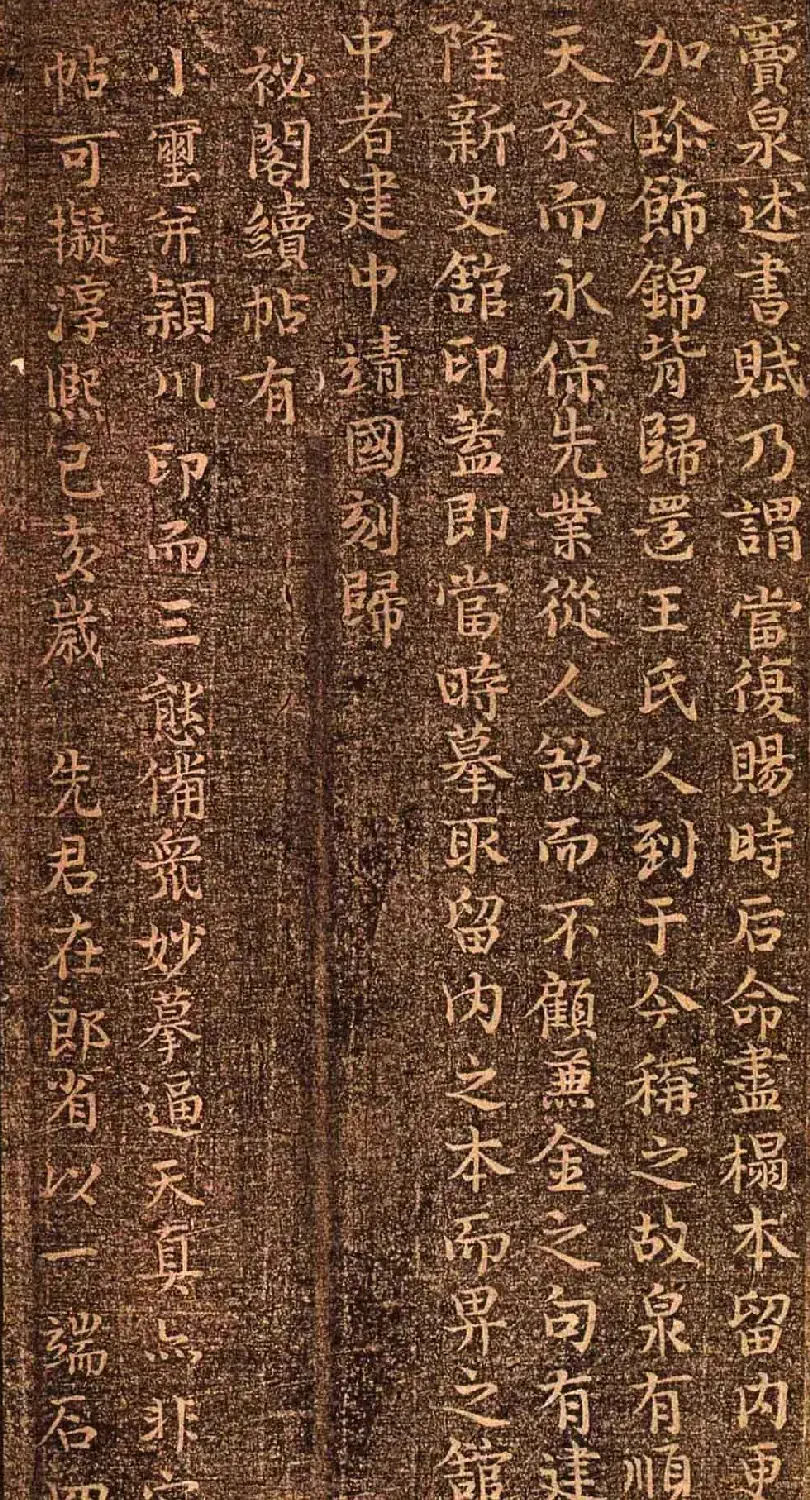 竇泉述書賦乃謂當復賜時后命盡榻本留内更
加珎飾錦背歸還王氏人到于今稱之故泉有順
天矜而永保先業從人欲而不顧兼金之句有建
隆新史舘印蓋即當時摹取留内之本而畀之舘
中者建中靖國刻歸
祕閣續帖有
小璽并潁川印而三態備衆妙摹逼天真亦非
帖可擬淳熙己亥歲先君在郎省以一端石